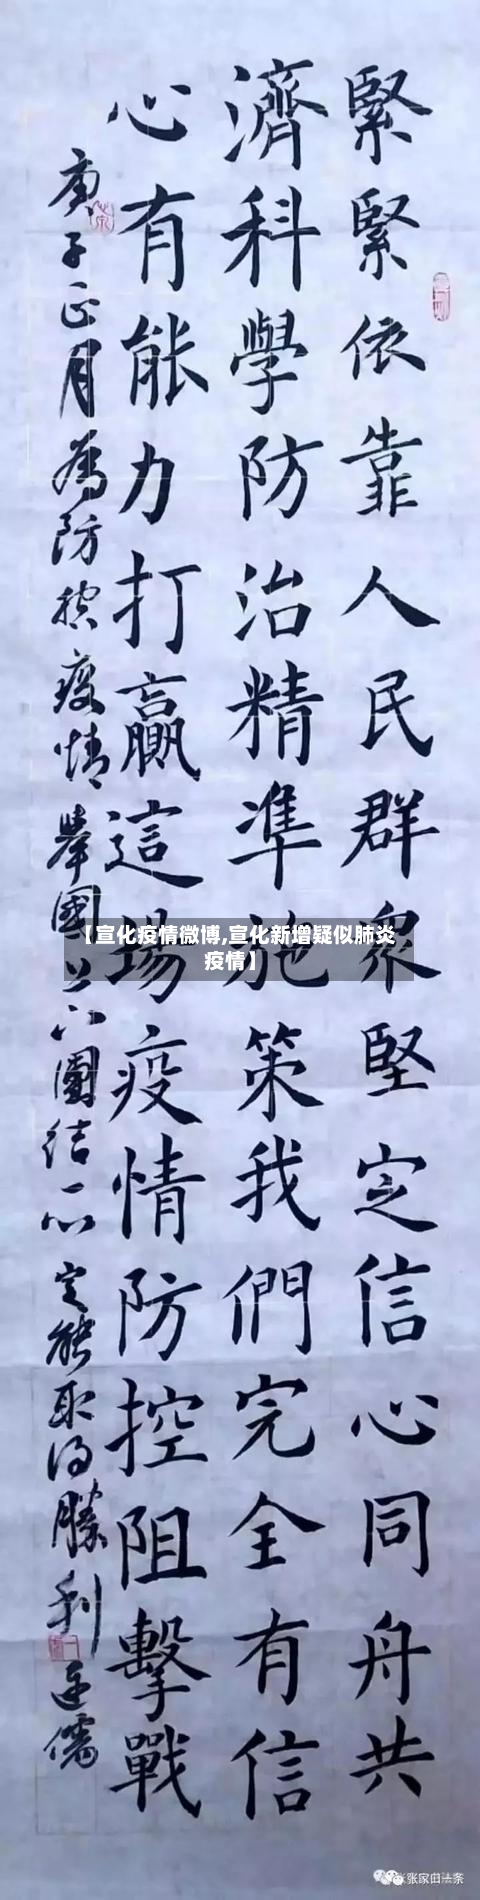 緊緊依靠人民群衆堅定信心同舟共
濟科學防治精準施策我們完全有信
心有能力打贏這場疫情防控阻擊戰
庚子正月為防控疫情舉國上下團结一心定能取得勝利
【宣化疫情微博,宣化新增疑似肺炎
疫情】